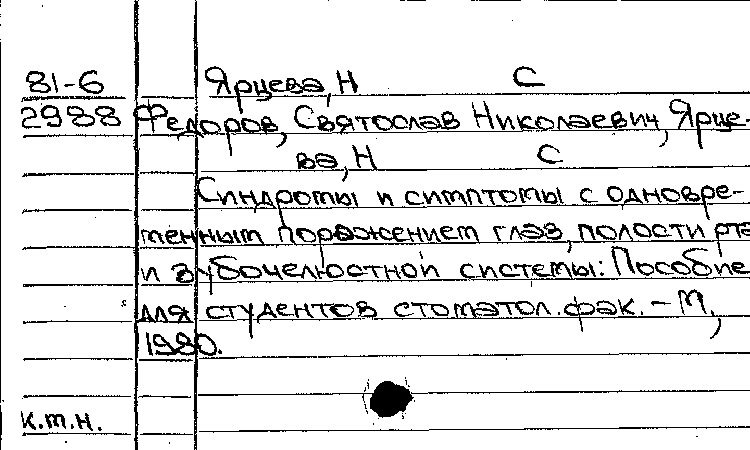 81-6 Ярцева, Н С
2988 Федоров, Святослав Николаевич, Ярце-
ва, Н С
Синдромы и симптомы с одновре-
менным поражением глаз, полости рта
и зубочелюстной системы: Пособие
для студентов стоматол. фак. – М.,
1980.
к.т.н.